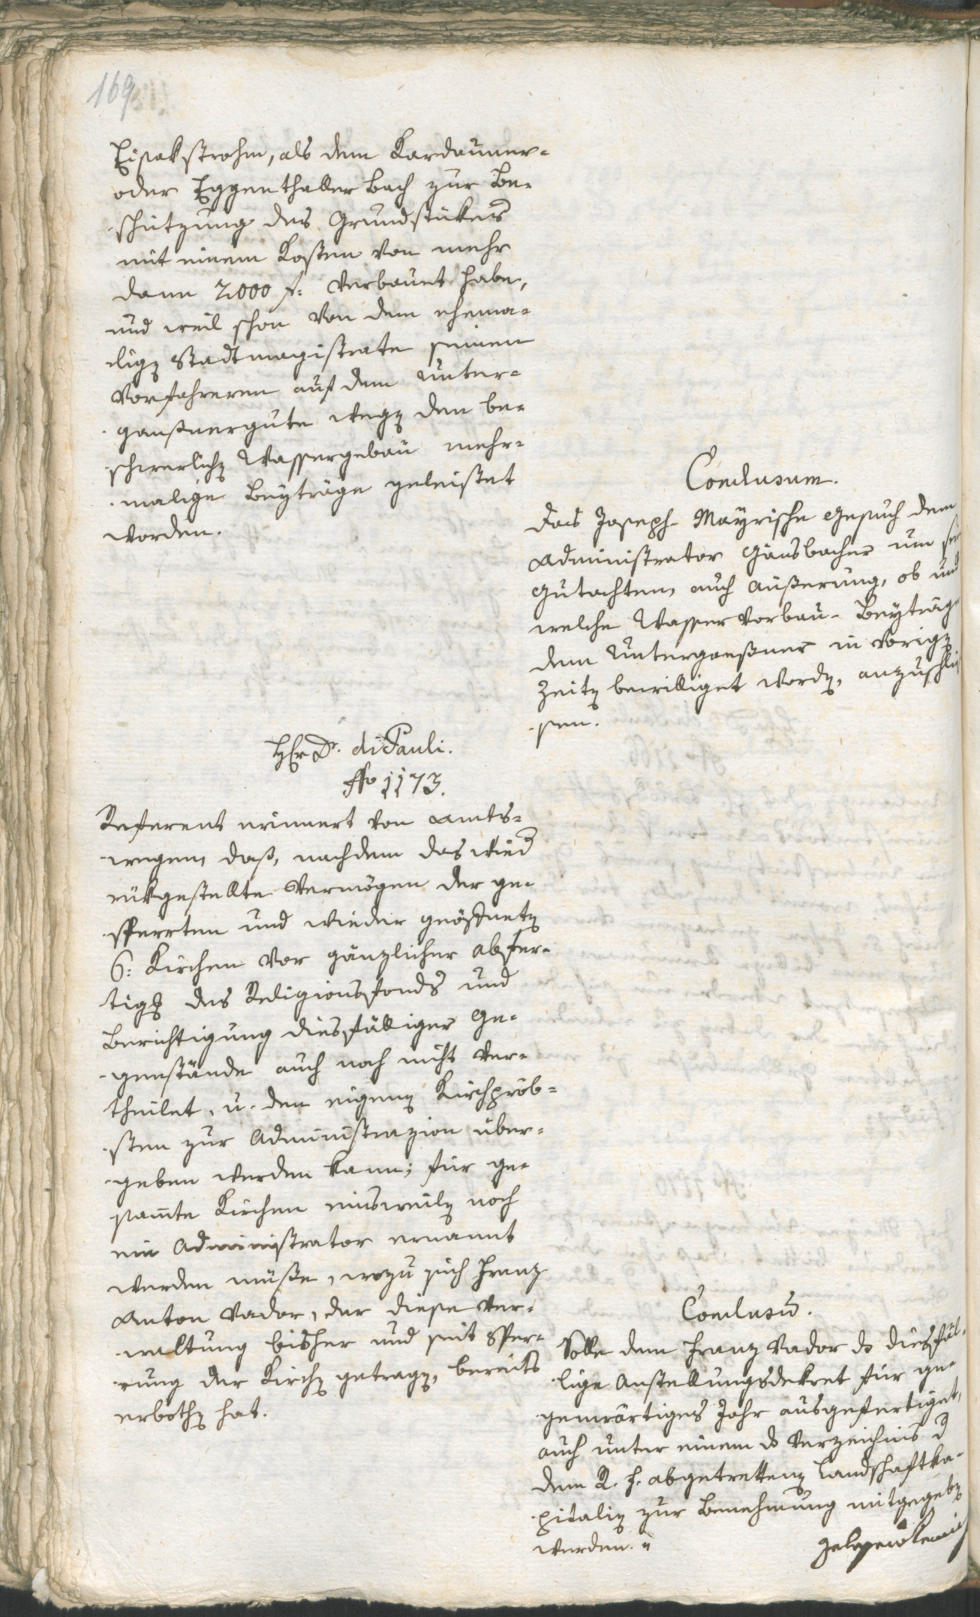 169
Eisakstrohm, als dem Kardauner-
oder Eggenthaller Bach zur Be-
schützung des Grundstükers
mit einem Kosten von mehr
dann 2000 f: verbauet habe,
und weil schon von dem ehema-
ligen Stadtmagistrate seinen
Vorfahreren auf dem Unter-
ganßnergute wegen dem be-
schwerlichen Wassergebäu mehr-
malige Beyträge geleistet
worden.
Conclusum.
Das Joseph-Mayrische Gesuch dem
Administrator Gänsbacher um sein
Gutachten, auch Äußerung, ob und
welche Wasservorbau-Beyträge
dem Unterganßner in vorigen
Zeiten bewilliget worden, anzuschlie
ssen.
Hr Dr. di Pauli.
No 1173.
Referent erinnert von Amts-
wegen, daß, nachdem das wied
rükgestellte Vermögen der ge-
sperrten und wieder geöffneten
6: Kirchen vor gänzlicher Abfer-
tigung des Religionsfonds und
Berichtigung diesfälliger Ge-
genstände auch noch nicht ver-
theilet, u. den eigenen Kirchpröb-
sten zur Administrazion über-
geben werden kann; für ge-
samte Kirchen einsweilen noch
ein Administrator ernannt
werden müße, wozu sich Franz
Anton Vador, der diese Ver-
waltung bisher und seit Sper-
rung der Kirchen getragen, bereits
erbothen hat.
Conclusum.
Solle dem Franz Vador das diesfäl-
lige Anstellungsdekret für ge-
genwärtiges Jahr ausgefertiget,
auch unter einem das Verzeichnis d
dem R. F. abgetrettenen Landschaftka-
pitalien zur Benehmung mitgegeben
werden.